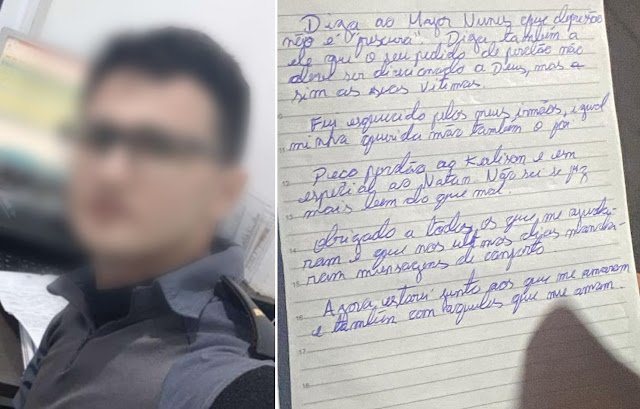 Diga ao Major Nunes que depressão
não é "frescura". Diga também a
ele que o seu pedido de perdão não
deve ser direcionado a Deus, mas a
sim as suas vítimas.
Fui esquecido pelos meus irmãos, igual
minha querida mãe também o foi
Peço perdão ao Kalison e em
especial ao Natan. Não sei se fiz
mais bem do que mal
Obrigado a todos os que me ajuda-
ram e que nos últimos dias manda-
ram mensagens de conforto
Agora estarei junto aos que me amaram
e também com aqueles que me amam.